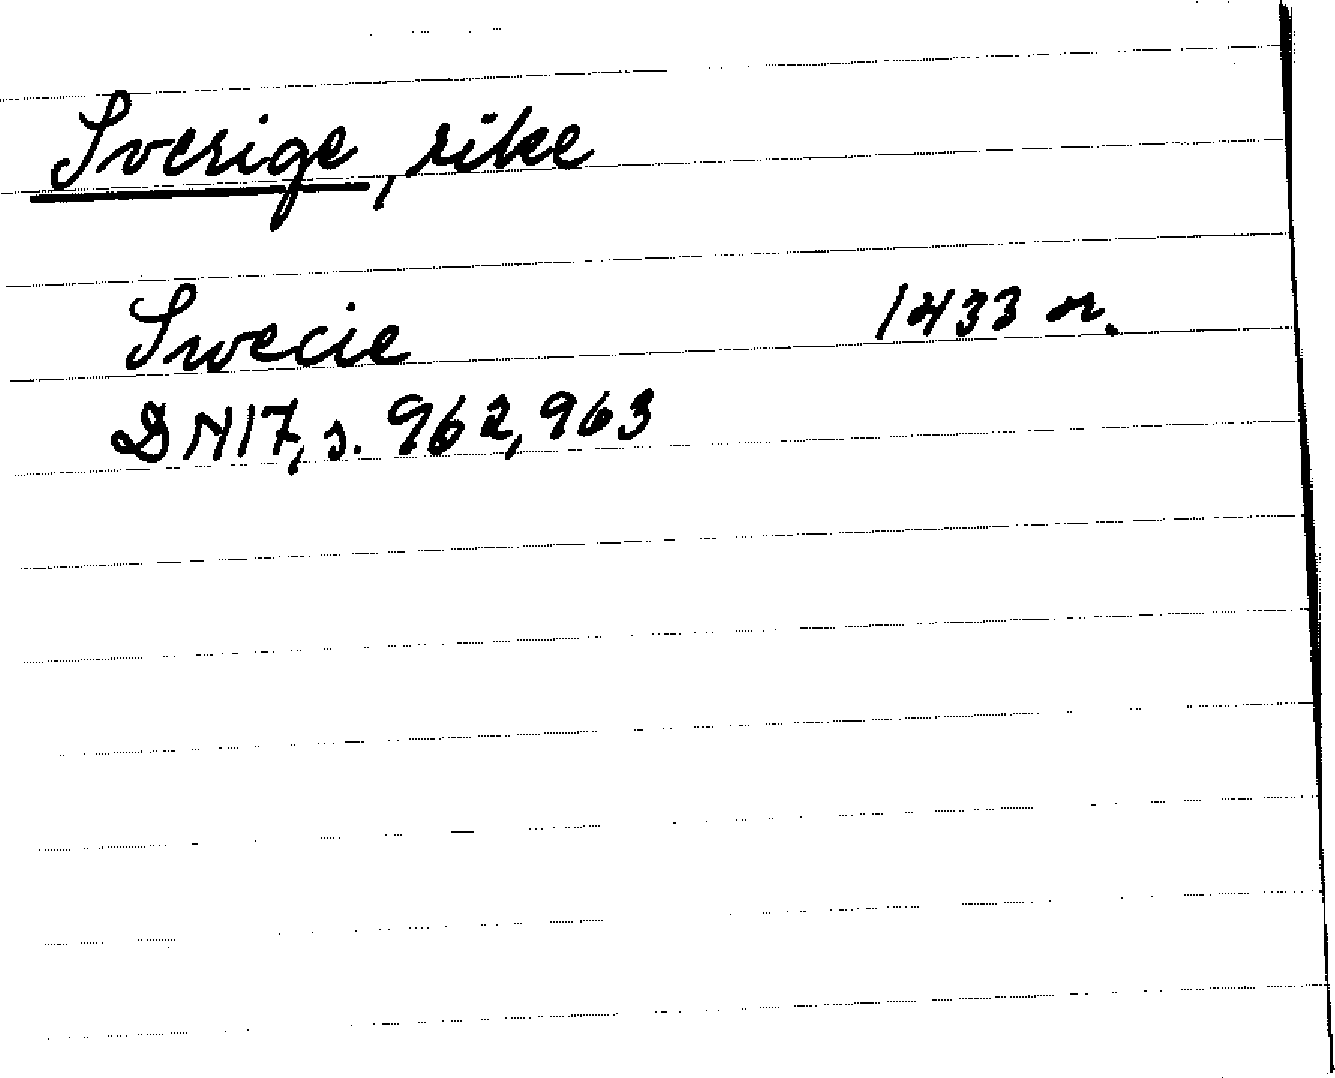 Sverige, rike
Swecie 1433 or.
DN17, s. 962, 963